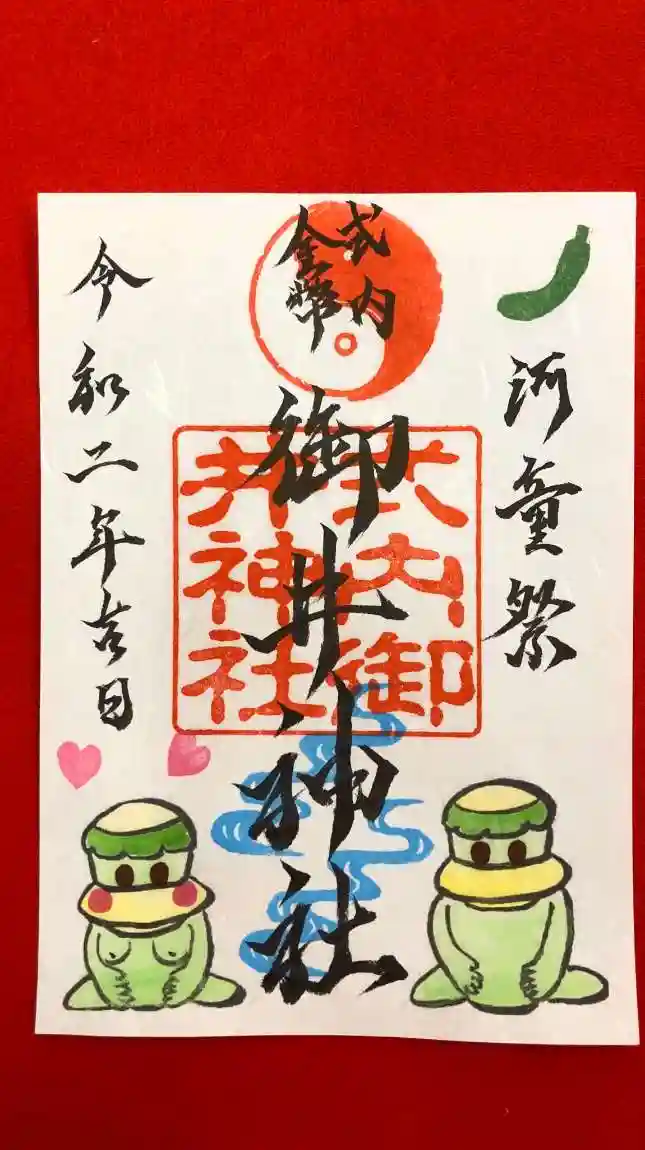 河童祭
式内
金幣
御井神社
式内御
井神社
令和二年吉日